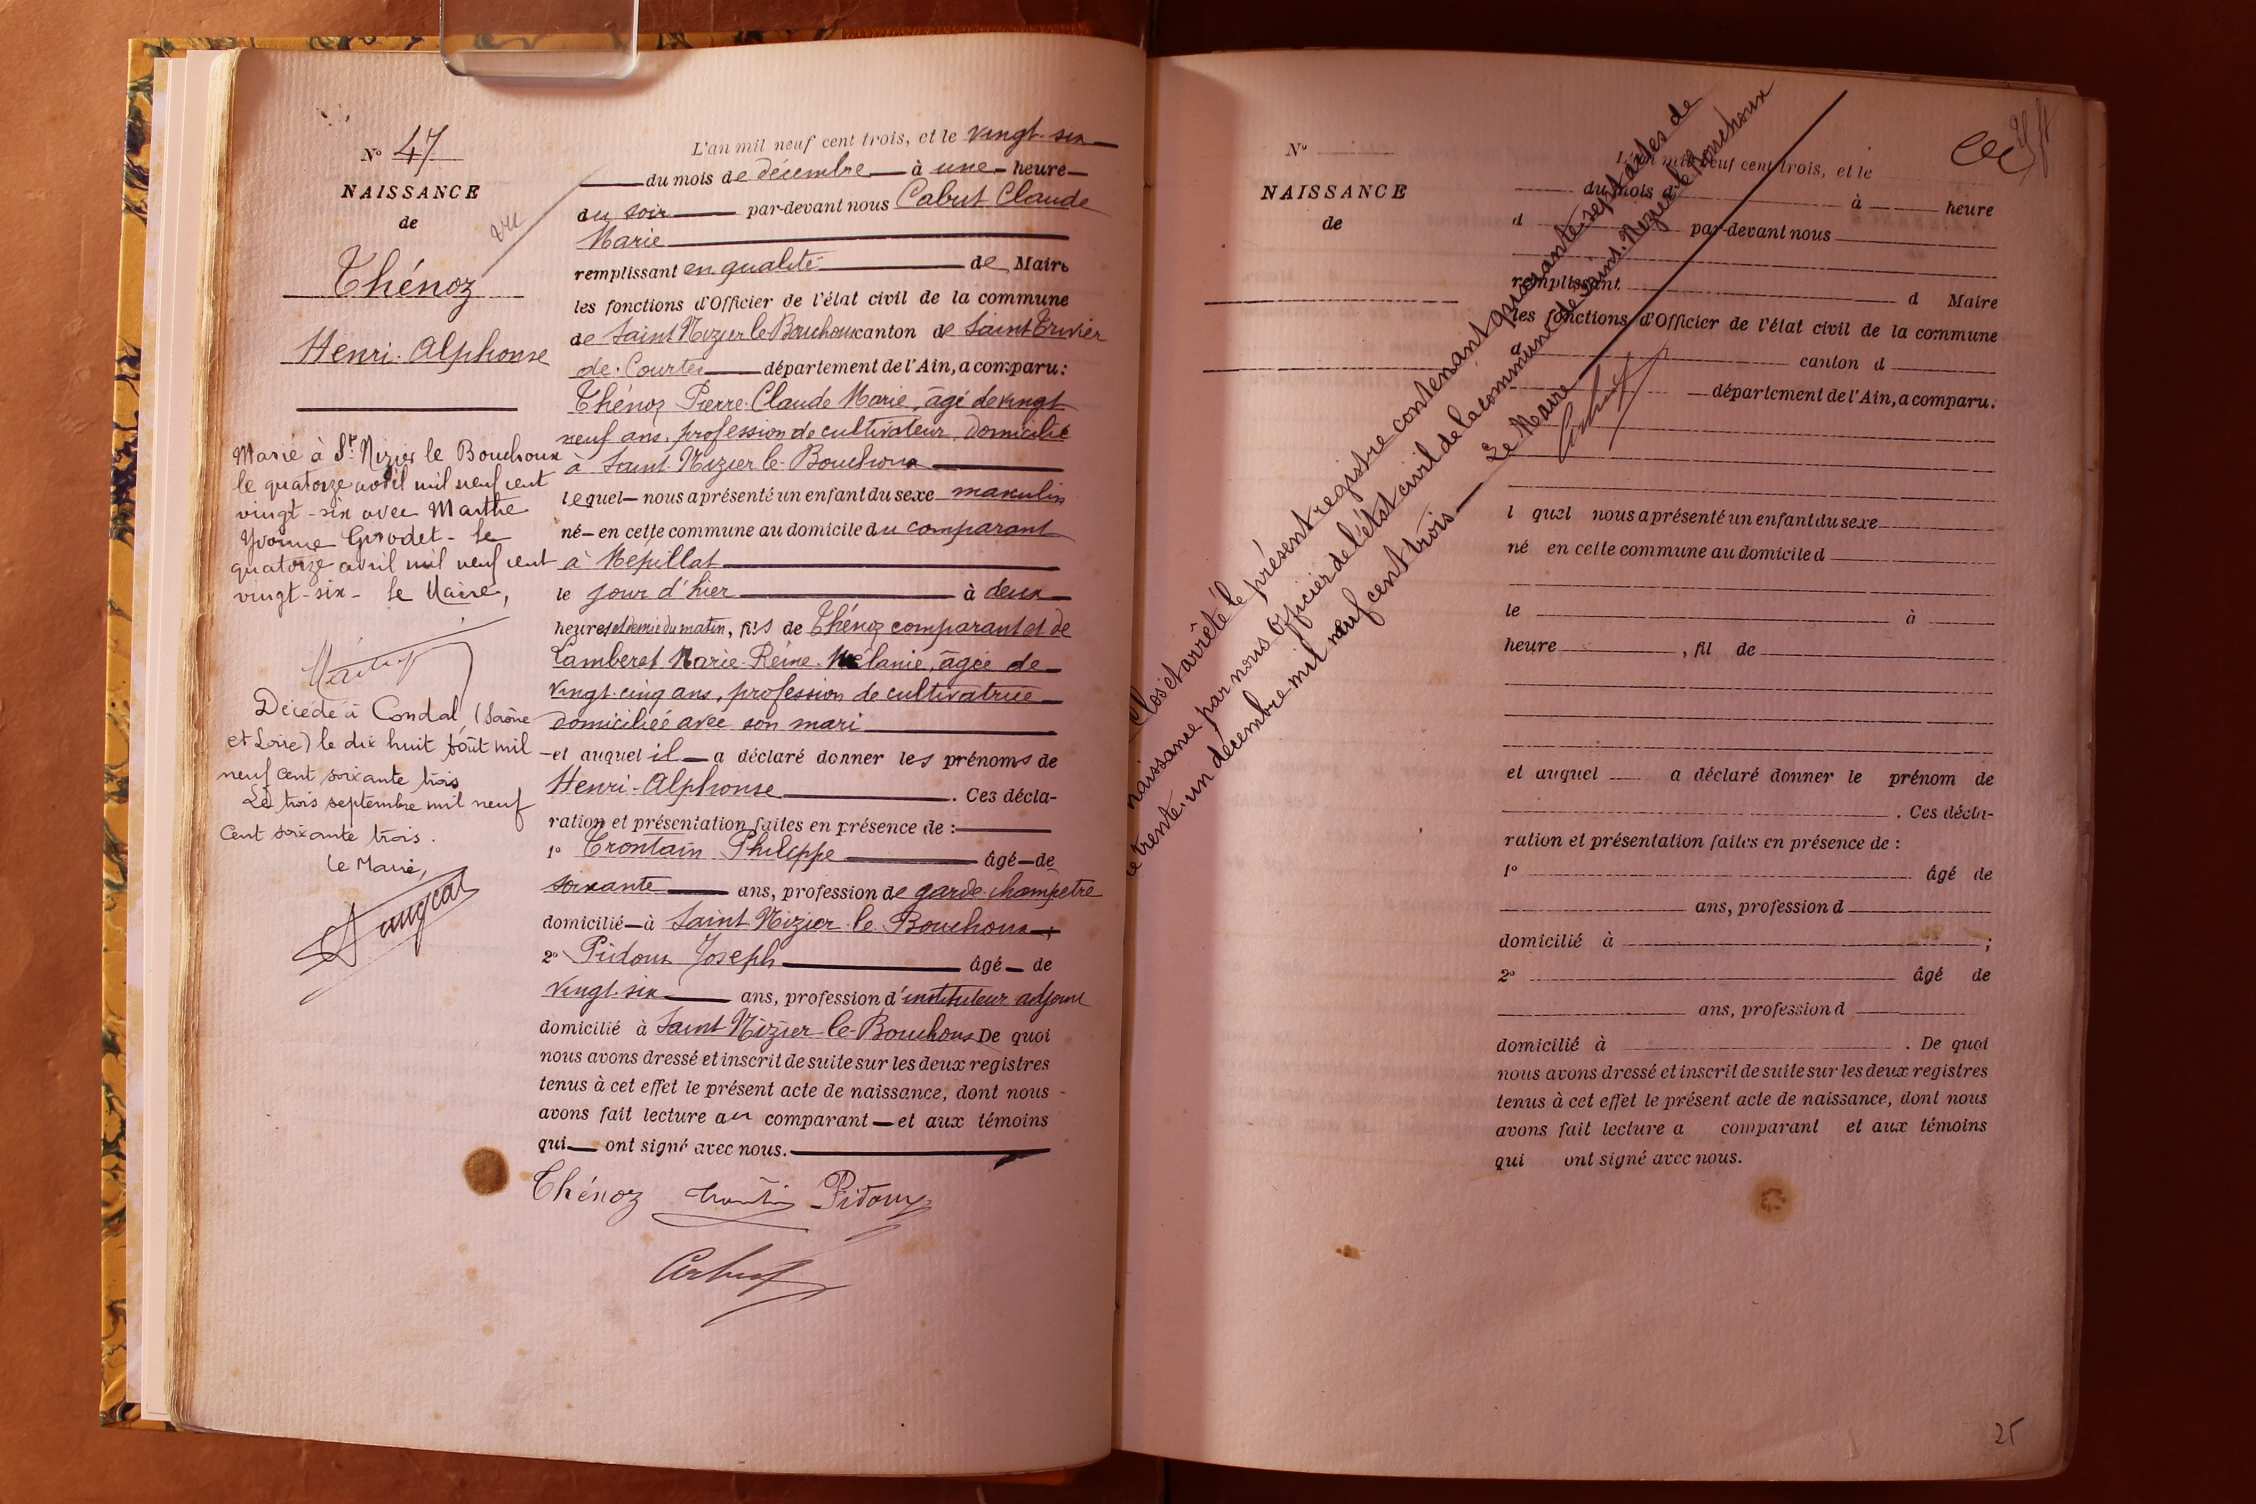 N° 47
NAISSANCE
de
Thénoz
Henri-Alphonse
vu
Marié à St Nizier le Bouchoux
le quatorze avril mil neuf cent
vingt-six avec Marthe
Yvonne Girodet - Le
quatorze avril mil neuf cent
vingt-six - Le Maire,
Décédé à Condal (Saône
et Loire) le dix huit août mil
neuf cent soixante trois
Le trois septembre mil neuf
cent soixante trois.
Le Maire,
L'an mil neuf cent trois, et le vingt-six
du mois de décembre à une heure
du soir par-devant nous Cabut Claude
Marie
remplissant en qualité de Maire
les fonctions d'Officier de l'état civil de la commune
de Saint Nizier le Bouchoux canton de Saint Trivier
de Courtes département de l'Ain, a comparu:
Thénoz Pierre-Claude Marie, âgé de vingt
neuf ans, profession de cultivateur, domicilié
à Saint-Nizier-le-Bouchoux
lequel nous a présenté un enfant du sexe masculin
né en cette commune au domicile du comparant
à Népillat
le jour d'hier à deux
heures et demie du matin, fils de Thénoz comparant et de
Lamberet Marie-Reine-Mélanie, âgée de
vingt-cinq ans, profession de cultivatrice
domiciliée avec son mari
et auquel il a déclaré donner les prénoms de
Henri-Alphonse. Ces décla-
ration et présentation faites en présence de :
1° Trontain Philippe âgé de
soixante ans, profession de garde-champêtre
domicilié à Saint-Nizier-le-Bouchoux;
2° Pidoux Joseph âgé de
vingt-six ans, profession d'instituteur adjoint
domicilié à Saint Nizier-le-Bouchoux De quoi
nous avons dressé et inscrit de suite sur les deux registres
tenus à cet effet le présent acte de naissance, dont nous
avons fait lecture au comparant et aux témoins
qui ont signé avec nous.
Thénoz Trontin Pidoux
Cabut
N°
NAISSANCE
de
L'an mil neuf cent trois, et le
du mois d à heure
d par-devant nous
remplissant d Maire
les fonctions d'Officier de l'état civil de la commune
d canton d
département de l'Ain, a comparu.
l quel nous a présenté un enfant du sexe
né en cette commune au domicile d
le à
heure , fil de
et auquel a déclaré donner le prénom de
. Ces décla-
ration et présentation faites en présence de :
1° âgé de
ans, profession d
domicilié à ;
2° âgé de
ans, profession d
domicilié à . De quoi
nous avons dressé et inscrit de suite sur les deux registres
tenus à cet effet le présent acte de naissance, dont nous
avons fait lecture a comparant et aux témoins
qui ont signé avec nous.
Clos et arrêté le présent registre contenant quarante-sept actes de
naissance par nous officier de l'état civil de la commune de Saint-Nizier-le-Bouchoux
ce trente-un décembre mil neuf cent trois Le Maire
Cabut
25